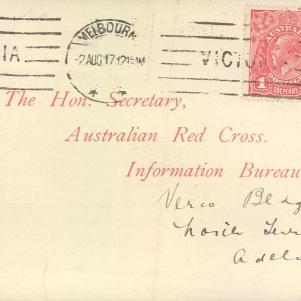 MELBOURN
-2AUG17 1215PM
IA
VICTO
AUSTRALI
1
ONE PENNY
The Hon. Secretary,
Australian Red Cross.
Information Bureau
Verco Bldg
North Terr
Adel